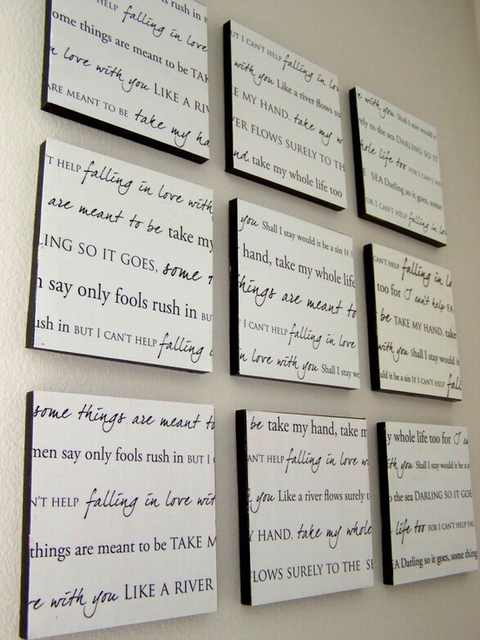 HELP falling in love
ome things are meant to be TAK
n love with you LIKE A RI
ARE MEANT TO BE take my ha
UT I CAN'T HELP falling in lo
with you Like a river flows su
E MY HAND. take my w
ER FLOWS SURELY TO TH
nd, take my whole life too
with you Shall I stay would it
ely to the sea DARLING SO IT
hole life too FOR I CAN'T
SEA Darling so it goes, some
FOR I CAN'T HELP falling in
'T HELP falling in love with
are meant to be take my
LING SO IT GOES, some
n say only fools rush in BUT
ush in BUT I CAN'T HELP falling
you Shall I stay would it be a sin IF I
hand, take my whole life
things are meant to
I CAN'T HELP falling in love
n love with you Shall I stay
CAN'T HELP falling in lo
too for I can't help
be TAKE MY HAND, take
with you Shall I stay would it
uld it be a sin IF I CAN'T HELP fall
some things are meant to b
men say only fools rush in BUT I
N'T HELP falling in love wit
things are meant to be TAKE M
e with you LIKE A RIVER
be take my hand, take m
AN'T HELP falling in love w
you Like a river flows surely t
Y HAND. take my whole
LOWS SURELY TO THE SE
y whole life too for I
ith you Shall I stay would it be a s
o the sea DARLING SO IT GOE
life too FOR I CAN'T HELP FAL
EA Darling so it goes, some thing